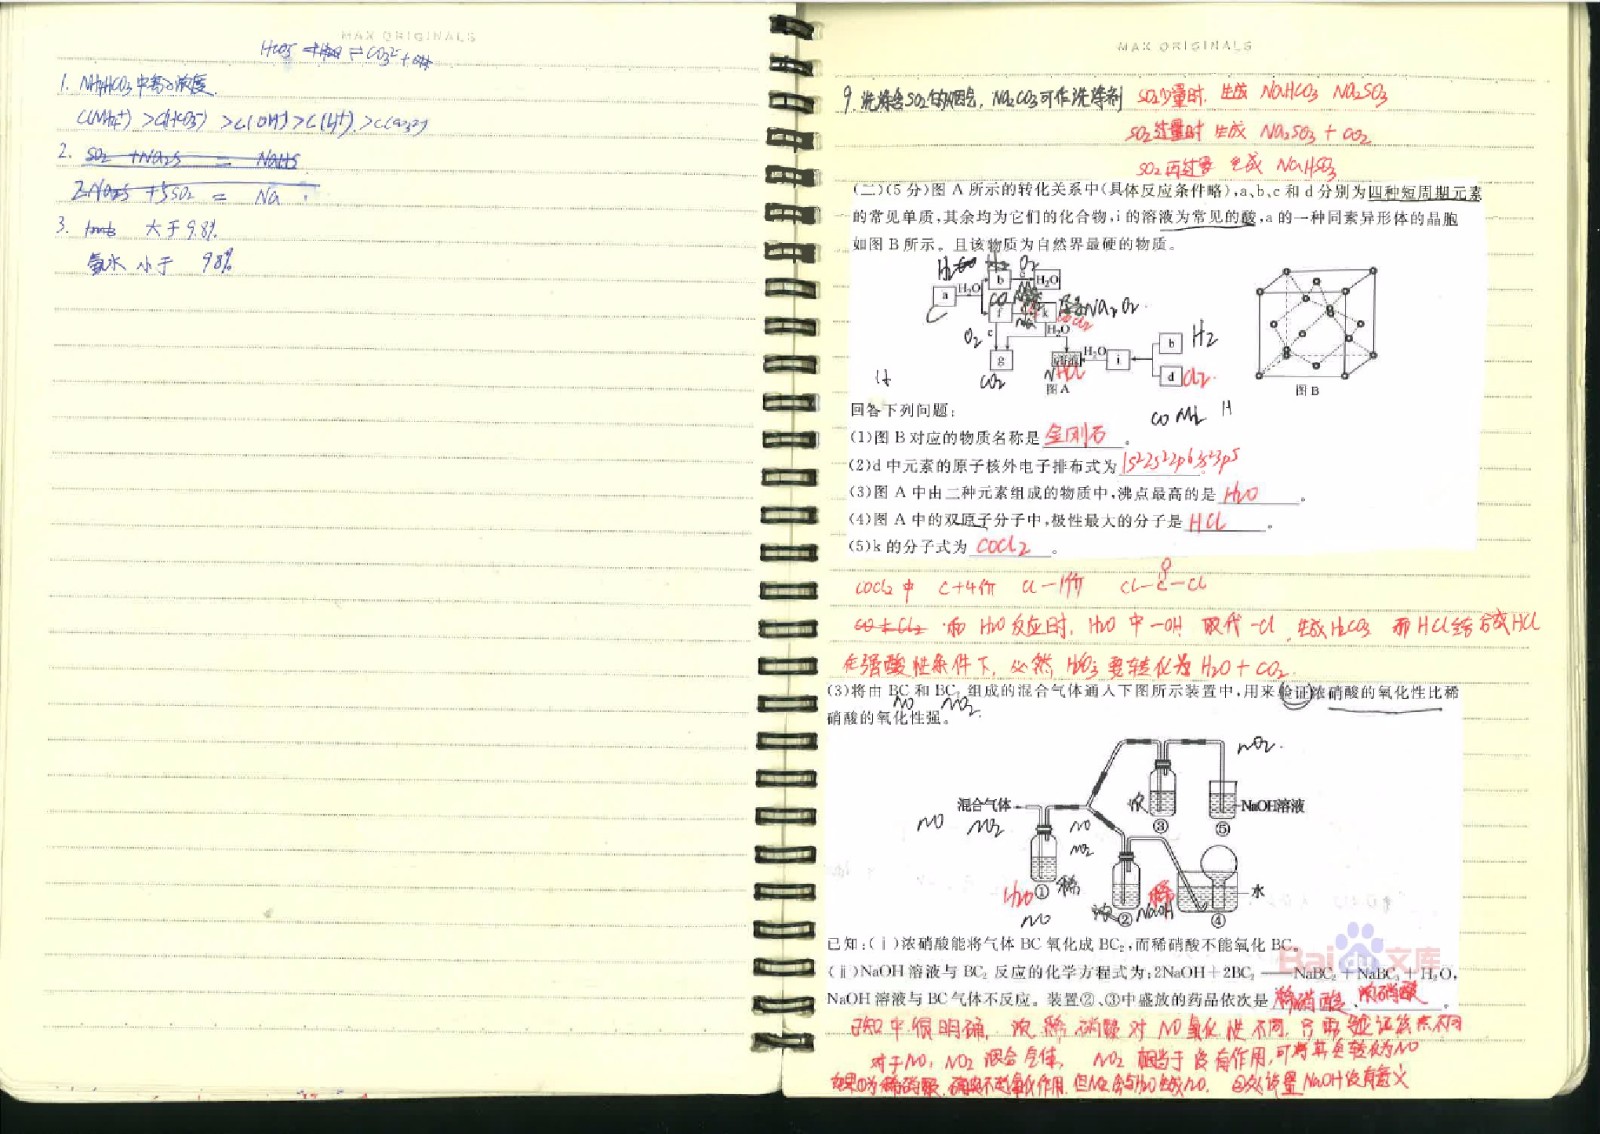 MAX ORIGINALS
1. NH4HCO3中离子浓度
C(NH4+) > C(HCO3-) > C(OH-) > C(H+) > C(CO32-)
2. SO2 + Na2S = NaHS
2Na2S + 5SO2 = Na
3. 大于9.8%
氨水 小于 9.8%
MAX ORIGINALS
9. 洗涤含SO2的烟气, Na2CO3可作洗涤剂 SO2少量时. 生成 NaHCO3 Na2SO3
SO2过量时 生成 Na2SO3 + CO2
SO2再过量 生成 NaHSO3
(二)(5分)图A所示的转化关系中(具体反应条件略),a、b、c和d分别为四种短周期元素
的常见单质,其余均为它们的化合物,i的溶液为常见的酸,a的一种同素异形体的晶胞
如图B所示。且该物质为自然界最硬的物质。
H2 O2
b H2O
a H2O
C CO f k Na2O2
COCl2
O2 c H2O
g 溶液 H2O i b H2
CO2 HCl d Cl2
图A
图B
回答下列问题:
(1)图B对应的物质名称是 金刚石 。
(2)d中元素的原子核外电子排布式为 1s²2s²2p⁶3s²3p⁵
(3)图A中由二种元素组成的物质中,沸点最高的是 H2O 。
(4)图A中的双原子分子中,极性最大的分子是 HCl 。
(5)k的分子式为 COCl2 。
COCl2中 C+4价 Cl-1价 Cl-C-Cl
O
CO+Cl2 和 H2O反应时, H2O中-OH 取代-Cl, 生成H2CO3 而H Cl结合成HCl
在强酸性条件下, 必然 H2CO3要转化为 H2O + CO2.
(3)将由BC和BC2组成的混合气体通入下图所示装置中,用来验证浓硝酸的氧化性比稀
NO NO2.
硝酸的氧化性强。
NO2.
混合气体
NO NO2
NO
NO2
浓
③
⑤
NaOH溶液
H2O ① 稀
NO
浓 ② NaOH
稀
④
水
已知:(ⅰ)浓硝酸能将气体BC氧化成BC2,而稀硝酸不能氧化BC。
(ⅱ)NaOH溶液与BC2反应的化学方程式为:2NaOH+2BC2══NaBC2+NaBC3+H2O,
NaOH溶液与BC气体不反应。装置②、③中盛放的药品依次是 稀硝酸 、浓硝酸 。
Baidu文库
已知中很明确, 浓、稀硝酸对NO氧化性不同, 只需验证其不同
对于NO, NO2混合气体, NO2相当于没有作用, 可将其全转化为NO
如果①为稀硝酸, 但NO2会与H2O生成NO. ②处设置NaOH没有意义